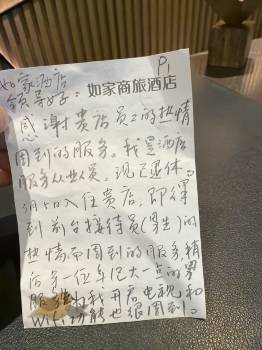 P1
如家商旅酒店
如家酒店
领导好:
感谢贵店员工的热情
周到的服务。我是酒店
服务从业人员,现已退休。
月5日入住贵店,即得
到前台接待员(男生)的
热情而周到的服务,稍
后是一位年纪大一点的男
服务为我开启电视和
Wifi功能也很周到。